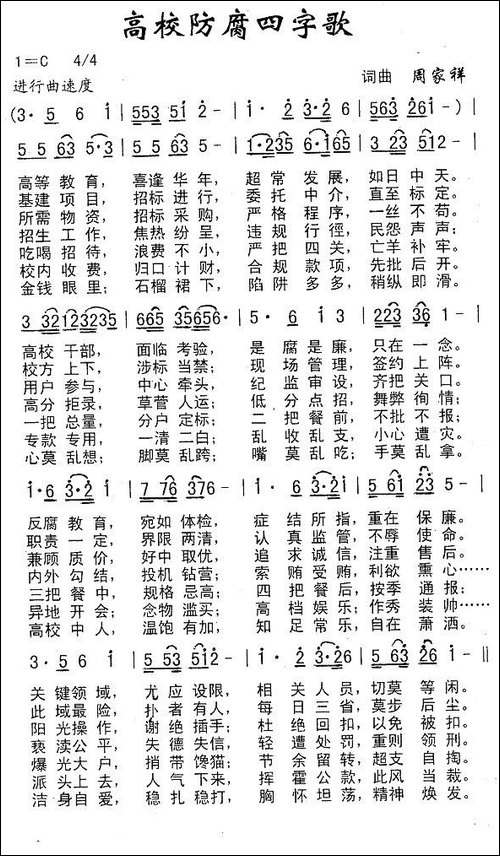 高校防腐四字歌
1=C 4/4
进行曲速度
词曲 周家祥
(3· 5 6 i | 553 5i 2 - | i · 2 3·2 6 | 563 26i - ) |
5 5 63 5·3 | 5 53 231 - | 1·235 6·i65 | 3 23 512 - |
高等 教育， 喜逢 华年， 超常 发展， 如日 中天。
基建 项目， 招标 进行， 委托 中介， 直至 标定。
所需 物资， 招标 采购， 严格 程序， 一丝 不苟。
招生 工作， 焦热 纷呈， 违规 行徑， 民怨 声声；
吃喝 招待， 浪费 不小， 严把 四关， 亡羊 补牢。
校内 收费， 归口 计财， 合规 款项， 先批 后开。
金钱 眼里； 石榴 裙下， 陷阱 多多， 稍纵 即滑。
3 32123235 | 665 35656· | 5· 6 i 3 | 223 36 1 - |
高校 干部， 面临 考验， 是 腐是 廉， 只在 一念。
校方 上下， 涉标 当禁； 现 场管 理， 签约 上阵。
用户 参与， 中心 牵头， 纪 监审 设， 齐把 关口。
高分 拒录， 草菅 人运； 低 分点 招， 舞弊 徇情；
一把 总量， 分户 定标； 二 把餐 前， 不批 不报；
专款 专用， 一清 二白； 乱 收乱 支， 小心 遭灾。
心莫 乱想； 脚莫 乱跨； 嘴 莫乱 吃； 手莫 乱拿。
i·6 3·2 i | 7 76 376 - | i · 6 3·2 i | 5 61 23 2 - |
反腐 教育， 宛如 体检， 症 结所 指， 重在 保廉。
职责 一定， 界限 两清， 认 真监 管， 不辱 使命。
兼顾 质价， 好中 取优， 追 求诚 信， 注重 售后。
内外 勾结， 投机 钻营； 索 贿受 贿， 利欲 熏心……
三把 餐中， 规格 忌高； 四 把餐 后， 按季 通报；
异地 开会； 念物 滥买； 高 档娱 乐； 作秀 装帅……
高校 中人， 温饱 有加， 知 足常 乐， 自在 萧洒。
3· 5 6 i | 5 53 512 - | i · 2 3·2 i | 5 63 26i - ‖
关 键领 域， 尤应 设限， 相 关人 员， 切莫 等闲。
此 域最 险， 扑者 有人， 每 日三 省， 莫步 后尘。
阳 光操 作， 谢绝 插手； 杜 绝回 扣， 以免 被扣。
亵 渎公 平， 失德 失信； 轻 遭处 罚， 重则 领刑。
爆 光大 户， 捎带 馋猫； 节 余留 转， 超支 自掏。
派 头上 去， 人气 下来， 挥 霍公 款， 此风 当裁。
洁 身自 爱， 稳扎 稳打， 胸 怀坦 荡， 精神 焕发。